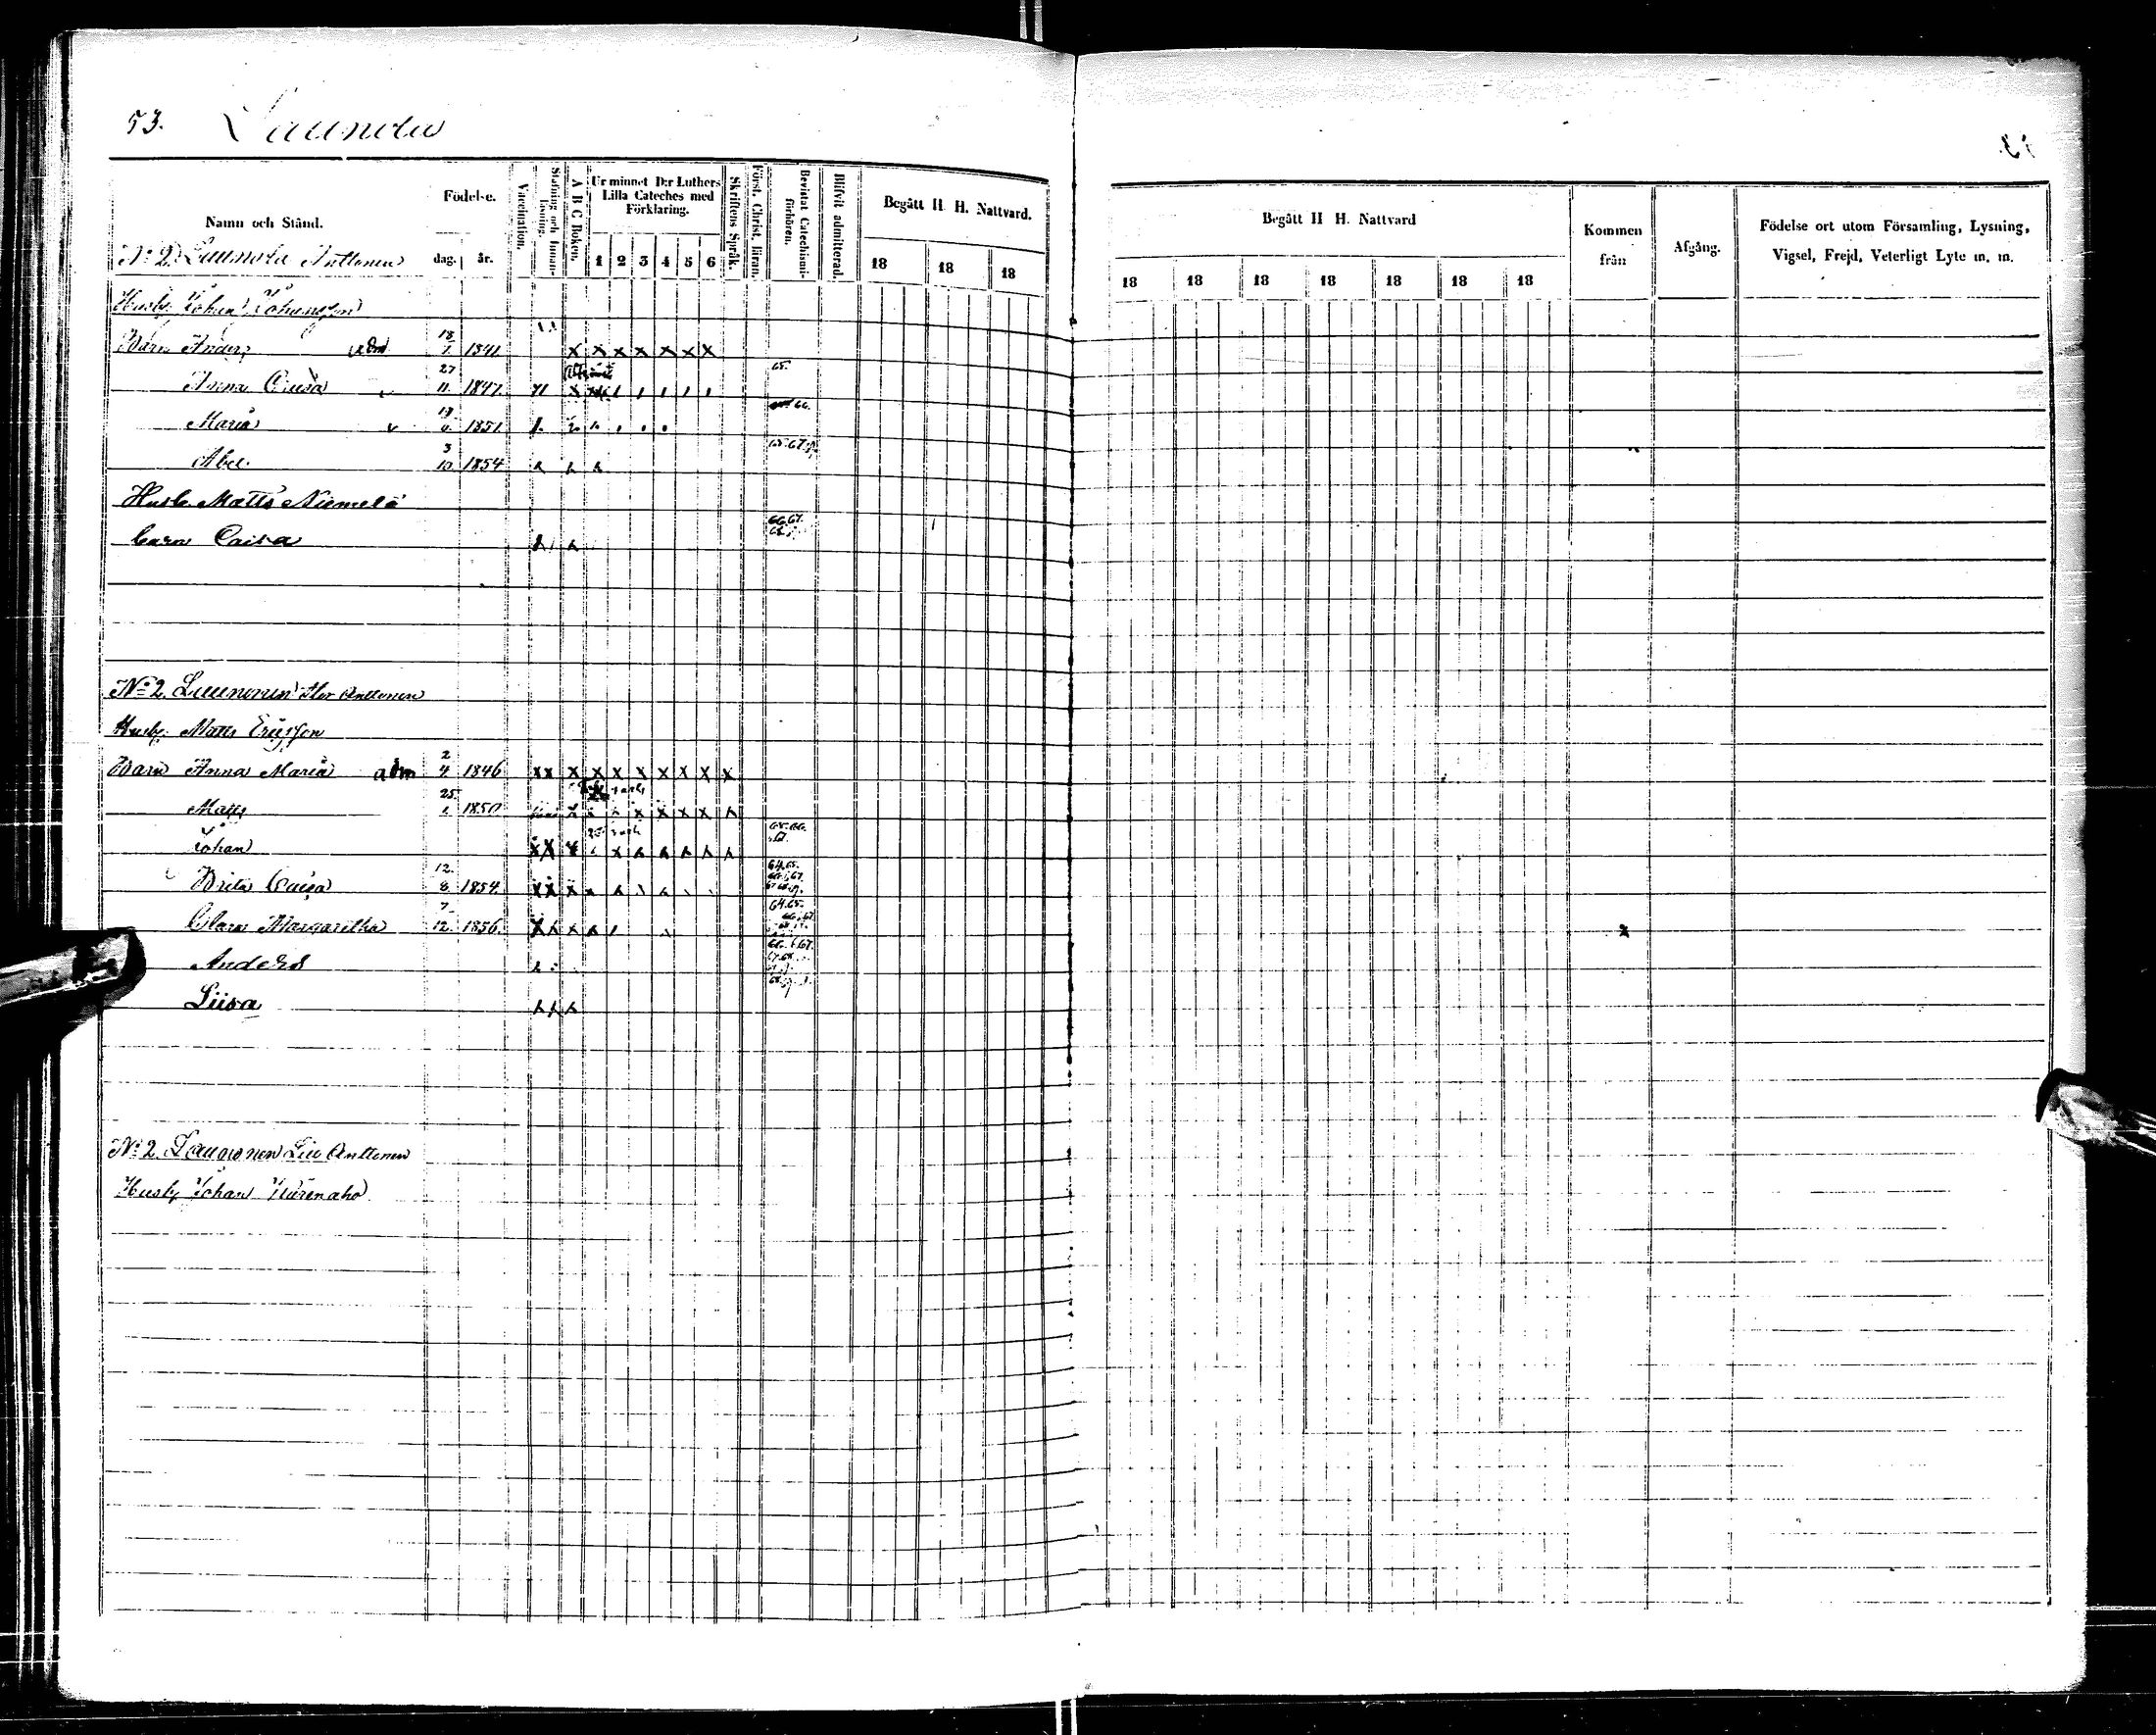 53. Launola
Namn och Stånd.
Födelse.
dag. år.
Vaccination.
Stafning och Innanläsning.
A B C Boken.
Ur minnet D:r Luthers Lilla Cateches med Förklaring.
1 2 3 4 5 6
Skriftens Språk.
Först. Christ. läran.
Bevistat Catechismiförhören.
Blifvit admitterad.
Begått H. H. Nattvard.
18 18 18
Begått H H. Nattvard
18 18 18 18 18 18 18
Kommen från
Afgång.
Födelse ort utom Församling, Lysning,
Vigsel, Frejd, Veterligt Lyte m. m.
N:o 2. Launola Anttonen
Husb. Johan Johansson
Barn Anders adm 18 1 1841 x x x x x x x
Anna Caisa 27 11. 1847. 65.
Maria 1851 66.
Abel 3 10 1854
Husb. Matts Niemelä
barn Caisa 66.67.
N:o 2. Launonen Anttonen
Husb. Matts Ericsson
Barn Anna Maria adm 2 4 1846 xx x x x x x x x x
Matts 25. 1850
Johan 65.66.
Brita Caisa 12. 8 1854 64.65.
Clara Margaretha 7 12. 1856. 64.65.
Anders
Liisa
N:o 2. Launonen Anttonen
Husb. Johan